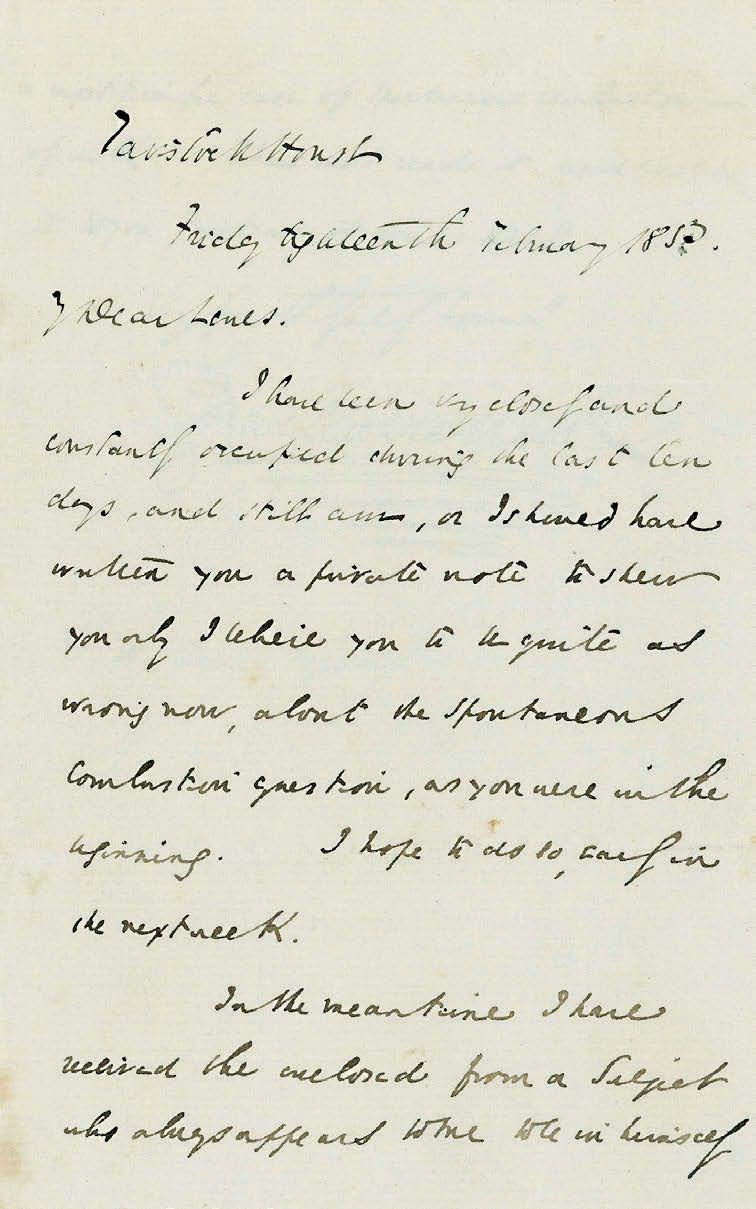 Tavistock House
Friday Eighteenth February 1853.
My Dear Lewes.
I have been very closely and
constantly occupied during the last ten
days, and still am, or I should have
written you a private note to shew
you why I believe you to be quite as
wrong now, about the Spontaneous
Combustion question, as you were in the
beginning. I hope to do so, early in
the next week.
In the meantime I have
received the enclosed from a Subject
who always appears to me to be in himself